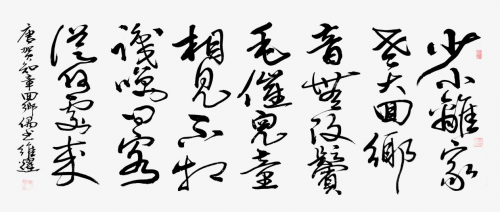 少小離家
老大回鄉
音無改鬢
毛催兒童
相見不相
識咲問客
從何處來
唐賀知章回鄉偶書